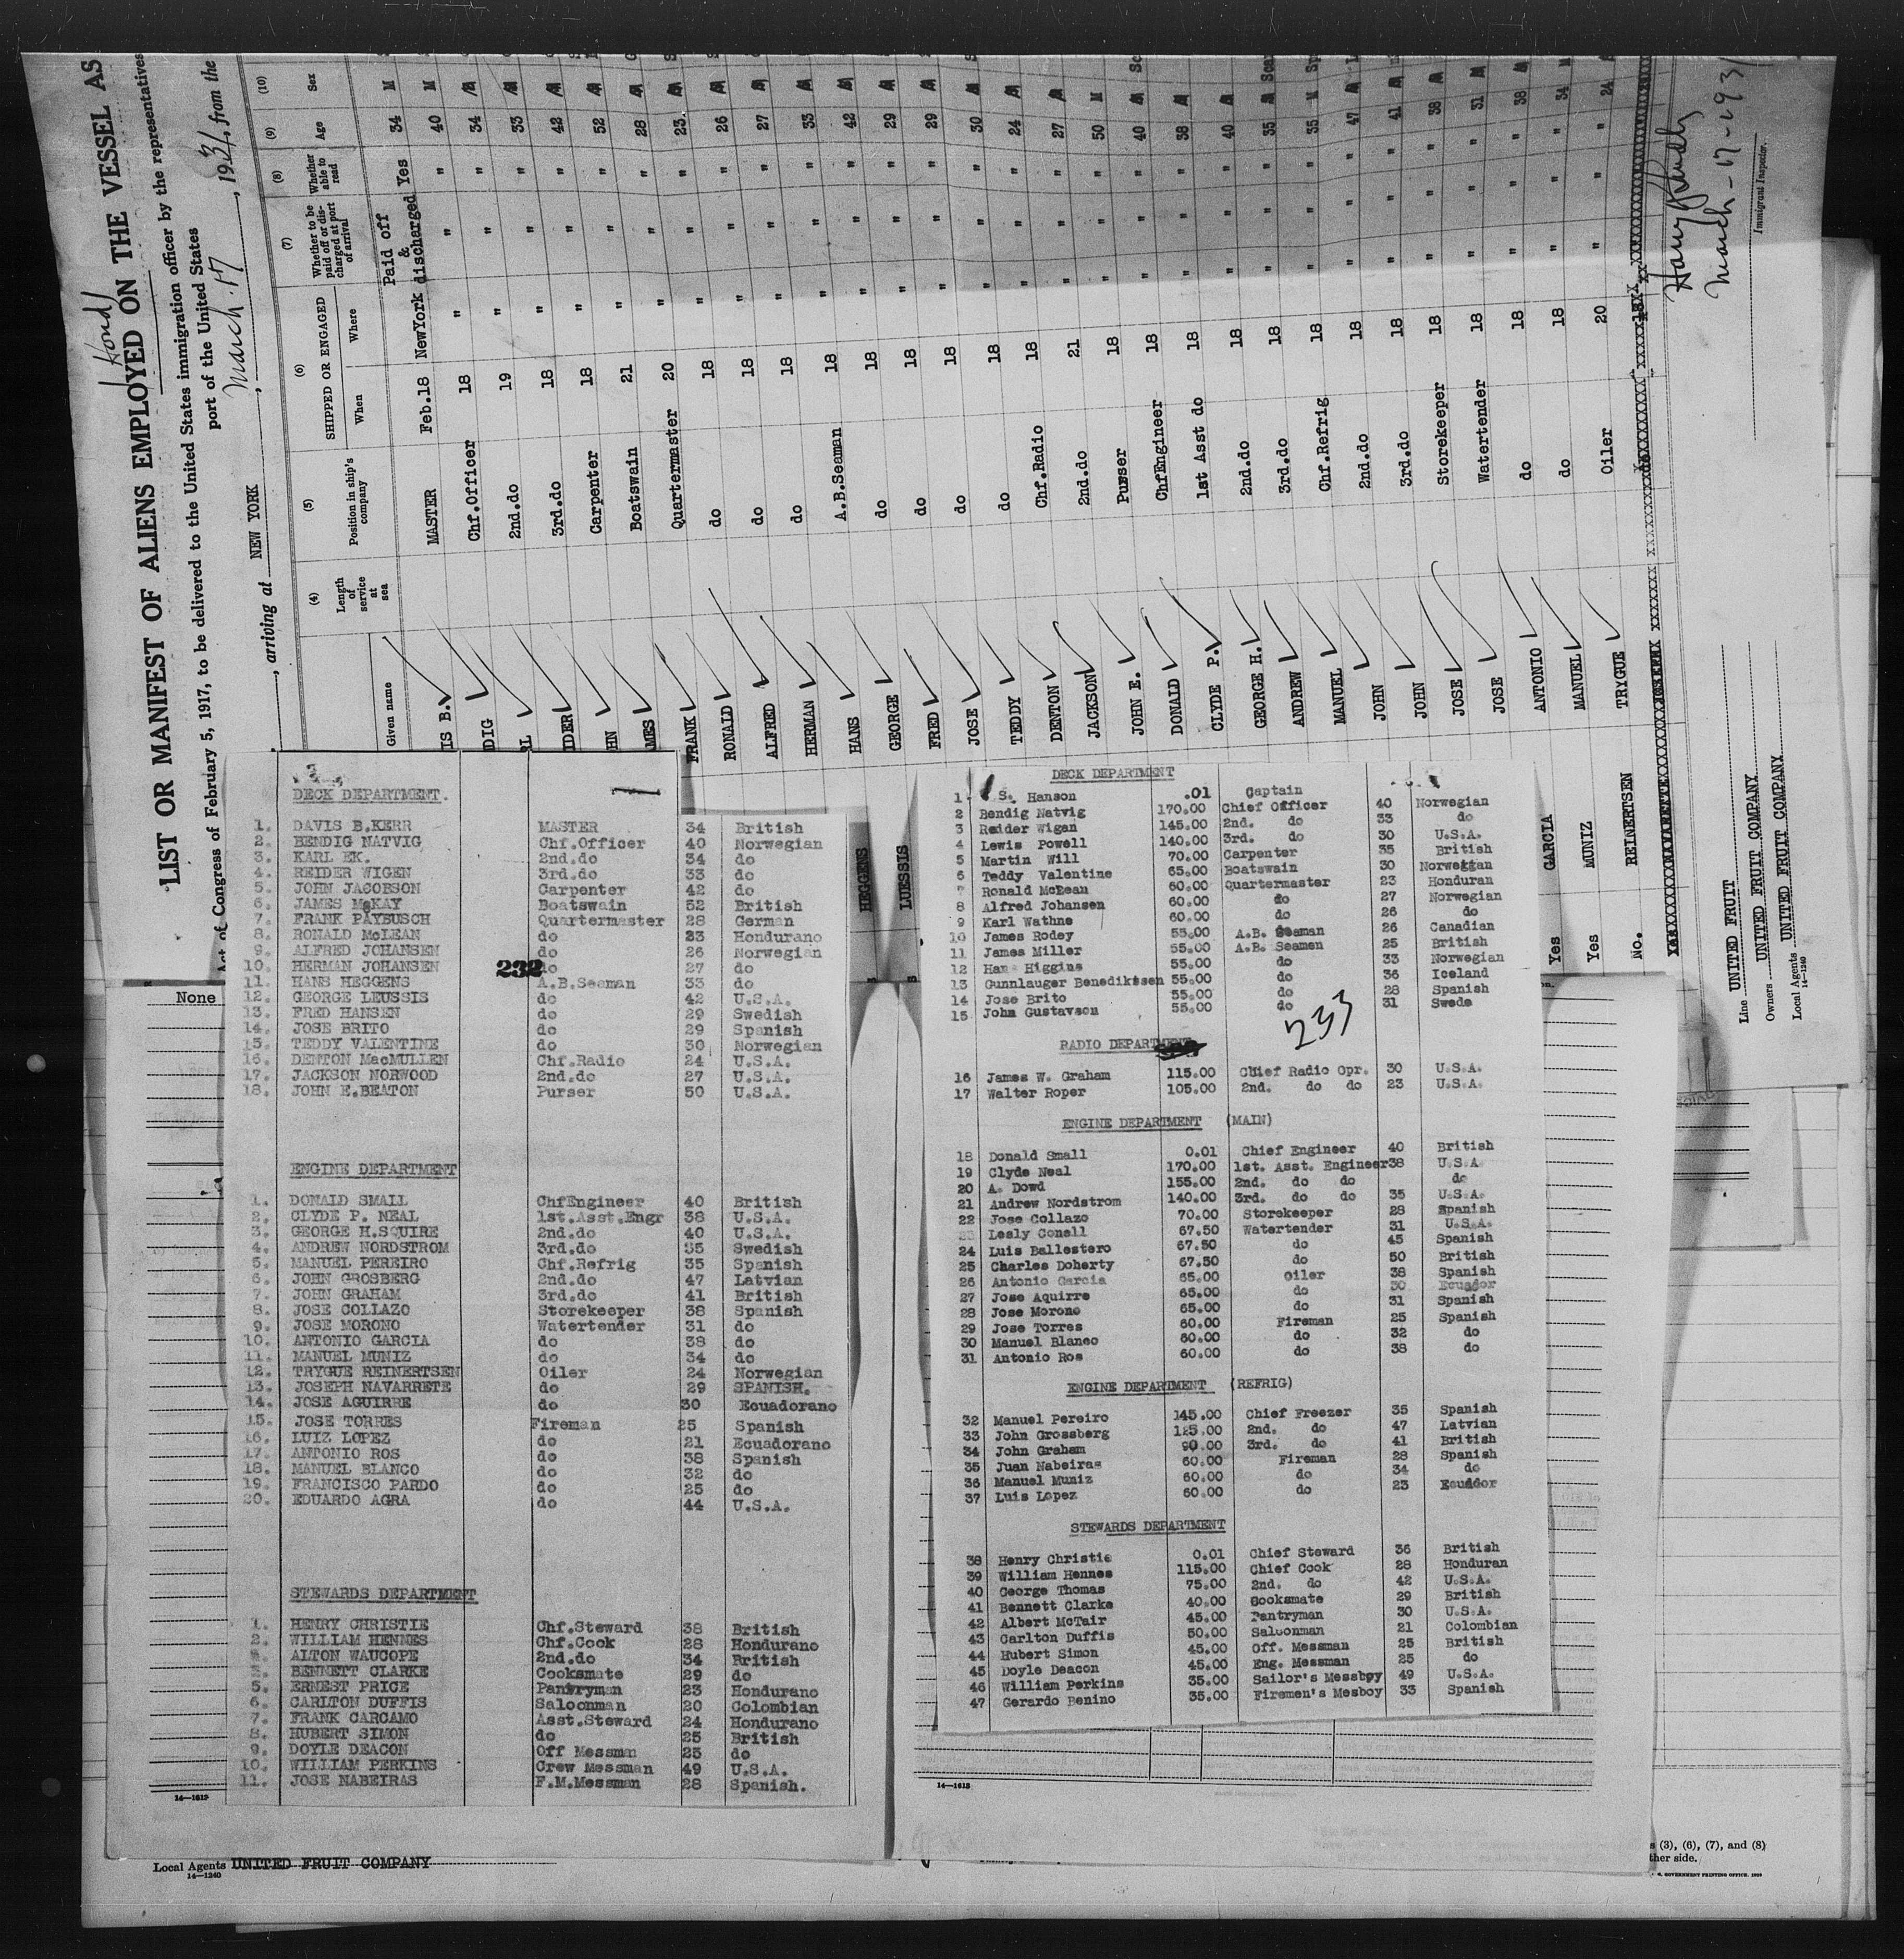 Hond/
LIST OR MANIFEST OF ALIENS EMPLOYED ON THE VESSEL AS
Act of Congress of February 5, 1917, to be delivered to the United States immigration officer by the representatives
port of the United States
, arriving at NEW YORK , March 17 , 1931, from the
(4) (5) (6) (7) (8) (9) (10)
Given name
Length of service at sea
Position in ship's company
SHIPPED OR ENGAGED
When Where
Whether to be paid off or discharged at port of arrival
Whether able to read
Age Sex
Paid off & discharged
IS B. MASTER Feb.18 NewYork Yes 34 M
DIG Chf.Officer 18 " " " 40 M
2nd.do 19 " " " 34
IDER 3rd.do 18 " " " 33
HN Carpenter 18 " " " 42
AMES Boatswain 21 " " " 52
FRANK Quartermaster 20 " " " 28
RONALD do 18 " " " 23.
ALFRED do 18 " " " 26
HERMAN do 18 " " " 27
HANS A.B.Seaman 18 " " " 33
GEORGE do 18 " " " 42
FRED do 18 " " " 29
JOSE do 18 " " " 29
TEDDY do 18 " " " 30
DENTON Chf.Radio 18 " " " 24
JACKSON 2nd.do 21 " " " 27
JOHN E. Purser 18 " " " 50 M
DONALD ChfEngineer 18 " " " 40
CLYDE P. 1st Asst do 18 " " " 38
GEORGE H. 2nd.do 18 " " " 40
ANDREW 3rd.do 18 " " " 35
MANUEL Chf.Refrig 18 " " " 35 M
JOHN 2nd.do 18 " " " 47
JOHN 3rd.do 18 " " " 41
JOSE Storekeeper 18 " " " 38
JOSE Watertender 18 " " " 31
ANTONIO do 18 " " " 38
MANUEL do 18 " " " 34
TRYGUE Oiler 20 " " " 24
HEGGENS
LUESSIS
Yes GARCIA
Yes MUNIZ
No. REINERTSEN
March-17-1931
Immigrant Inspector.
Line UNITED FRUIT
Owners UNITED FRUIT COMPANY
Local Agents UNITED FRUIT COMPANY
14—1240
None
DECK DEPARTMENT.
1. DAVIS B.KERR MASTER 34 British
2. BENDIG NATVIG Chf.Officer 40 Norwegian
3. KARL EK. 2nd.do 34 do
4. REIDER WIGEN 3rd.do 33 do
5. JOHN JACOBSON Carpenter 42 do
6. JAMES McKAY Boatswain 52 British
7. FRANK PAYBUSCH Quartermaster 28 German
8. RONALD McLEAN do 23 Hondurano
9. ALFRED JOHANSEN do 26 Norwegian
10. HERMAN JOHANSEN do 27 do
232
11. HANS HEGGENS A.B.Seaman 33 do
12. GEORGE LEUSSIS do 42 U.S.A.
13. FRED HANSEN do 29 Swedish
14. JOSE BRITO do 29 Spanish
15. TEDDY VALENTINE do 30 Norwegian
16. DENTON MacMULLEN Chf.Radio 24 U.S.A.
17. JACKSON NORWOOD 2nd.do 27 U.S.A.
18. JOHN E.BEATON Purser 50 U.S.A.
ENGINE DEPARTMENT
1. DONALD SMALL ChfEngineer 40 British
2. CLYDE P. NEAL 1st.Asst.Engr 38 U.S.A.
3. GEORGE H.SQUIRE 2nd.do 40 U.S.A.
4. ANDREW NORDSTROM 3rd.do 35 Swedish
5. MANUEL PEREIRO Chf.Refrig 35 Spanish
6. JOHN GROSBERG 2nd.do 47 Latvian
7. JOHN GRAHAM 3rd.do 41 British
8. JOSE COLLAZO Storekeeper 38 Spanish
9. JOSE MORONO Watertender 31 do
10. ANTONIO GARCIA do 38 do
11. MANUEL MUNIZ do 34 do
12. TRYGUE REINERTSEN Oiler 24 Norwegian
13. JOSEPH NAVARRETE do 29 SPANISH.
14. JOSE AGUIRRE do 30 Ecuadorano
15. JOSE TORRES Fireman 25 Spanish
16. LUIZ LOPEZ do 21 Ecuadorano
17. ANTONIO ROS do 38 Spanish
18. MANUEL BLANCO do 32 do
19. FRANCISCO PARDO do 25 do
20. EDUARDO AGRA do 44 U.S.A.
STEWARDS DEPARTMENT
1. HENRY CHRISTIE Chf.Steward 38 British
2. WILLIAM HENNES Chf.Cook 28 Hondurano
ALTON WAUCOPE 2nd.do 34 British
BENNETT CLARKE Cooksmate 29 do
5. ERNEST PRICE Pantryman 23 Hondurano
6. CARLTON DUFFIS Saloonman 20 Colombian
7. FRANK CARCAMO Asst.Steward 24 Hondurano
8. HUBERT SIMON do 25 British
9. DOYLE DEACON Off Messman 25 do
10. WILLIAM PERKINS Crew Messman 49 U.S.A.
11. JOSE NABEIRAS F.M.Messman 28 Spanish.
14—1613
Local Agents UNITED FRUIT COMPANY
14—1240
DECK DEPARTMENT
1 S. Hanson .01 Captain
2 Bendig Natvig 170.00 Chief Officer 40 Norwegian
3 Reider Wigan 145.00 2nd. do 33 do
4 Lewis Powell 140.00 3rd. do 30 U.S.A.
5 Martin Will 70.00 Carpenter 35 British
6 Teddy Valentine 65.00 Boatswain 30 Norweggan
7 Ronald McBean 60.00 Quartermaster 23 Honduran
8 Alfred Johansen 60.00 do 27 Norwegian
9 Karl Wathne 60.00 do 26 do
10 James Rodey 55.00 A.B. Seaman 26 Canadian
11 James Miller 55.00 A.B. Seamen 25 British
12 Hans Higgins 55.00 do 33 Norwegian
13 Gunnlauger Benediktssen 55.00 do 36 Iceland
14 Jose Brito 55.00 do 28 Spanish
15 John Gustavson 55.00 do 31 Swede
233
RADIO DEPARTMENT
16 James W. Graham 115.00 Chief Radio Opr. 30 U.S.A.
17 Walter Roper 105.00 2nd. do do 23 U.S.A.
ENGINE DEPARTMENT (MAIN)
18 Donald Small 0.01 Chief Engineer 40 British
19 Clyde Neal 170.00 1st. Asst. Engineer 38 U.S.A
20 A. Dowd 155.00 2nd. do do do
21 Andrew Nordstrom 140.00 3rd. do do 35 U.S.A.
22 Jose Collazo 70.00 Storekeeper 28 Spanish
Lesly Conell 67.50 Watertender 31 U.S.A.
24 Luis Ballestero 67.50 do 45 Spanish
25 Charles Doherty 67.50 do 50 British
26 Antonio Garcia 65.00 Oiler 38 Spanish
27 Jose Aquirre 65.00 do 30 Ecuador
28 Jose Morono 65.00 do 31 Spanish
29 Jose Torres 60.00 Fireman 25 Spanish
30 Manuel Blanco 60.00 do 32 do
31 Antonio Ros 60.00 do 38 do
ENGINE DEPARTMENT (REFRIG)
32 Manuel Pereiro 145.00 Chief Freezer 35 Spanish
33 John Grossberg 125.00 2nd. do 47 Latvian
34 John Graham 90.00 3rd. do 41 British
35 Juan Nabeiras 60.00 Fireman 28 Spanish
36 Manuel Muniz 60.00 do 34 do
37 Luis Lopez 60.00 do 23 Ecuador
STEWARDS DEPARTMENT
38 Henry Christie 0.01 Chief Steward 36 British
39 William Hennes 115.00 Chief Cook 28 Honduran
40 George Thomas 75.00 2nd. do 42 U.S.A.
41 Bennett Clarke 40.00 Cooksmate 29 British
42 Albert McTair 45.00 Pantryman 30 U.S.A.
43 Carlton Duffis 50.00 Saloonman 21 Colombian
44 Hubert Simon 45.00 Off. Messman 25 British
45 Doyle Deacon 45.00 Eng. Messman 25 do
46 William Perkins 35.00 Sailor's Messboy 49 U.S.A.
47 Gerardo Benino 35.00 Firemen's Mesboy 33 Spanish
14—1613
(3), (6), (7), and (8)
ther side.
GOVERNMENT PRINTING OFFICE